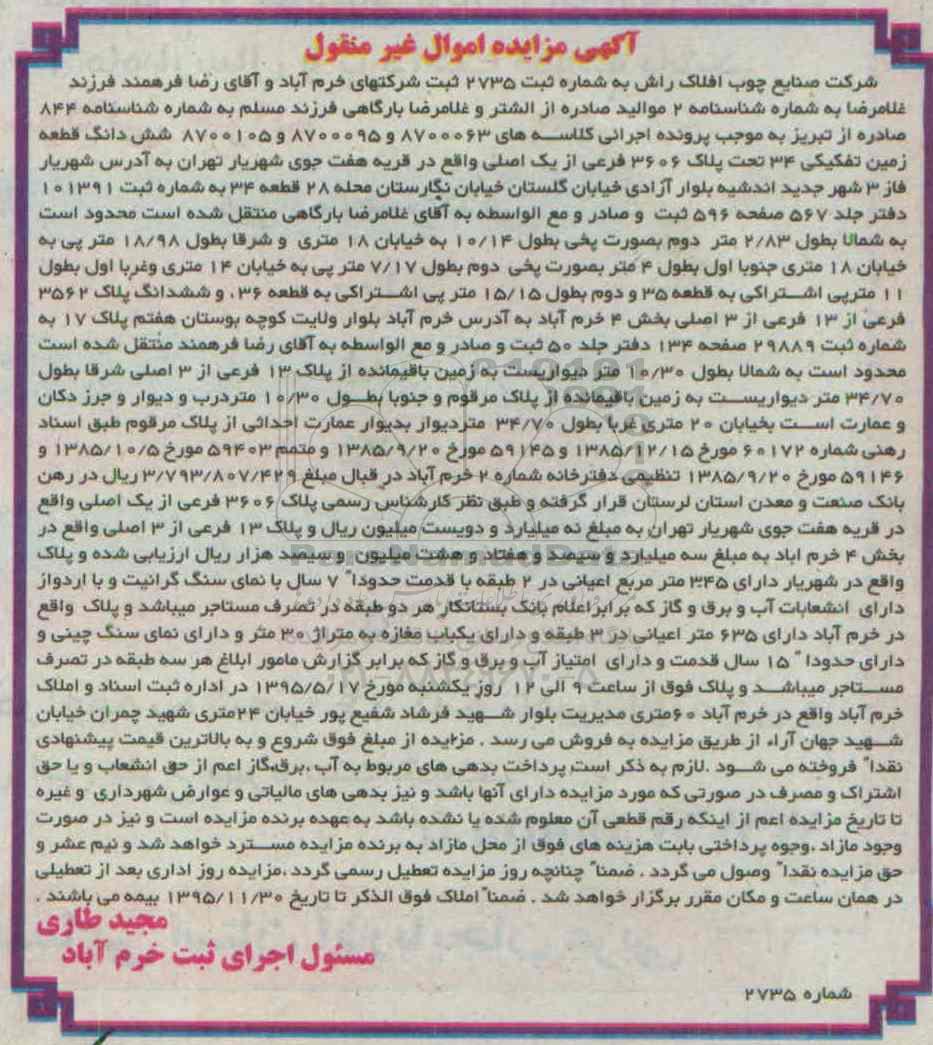 آگهی مزایده اموال غیر منقول
شرکت صنایع چوب افلاک راش به شماره ثبت ۲۷۳۵ ثبت شرکتهای خرم آباد و آقای رضا فرهمند فرزند
غلامرضا به شماره شناسنامه ۲ موالید صادره از الشتر و غلامرضا بارگاهی فرزند مسلم به شماره شناسنامه ۸۴۴
صادره از تبریز به موجب پرونده اجرائی کلاسه های ۸۷۰۰۰۶۳ و ۸۷۰۰۰۹۵ و ۸۷۰۰۱۰۵ شش دانگ قطعه
زمین تفکیکی ۳۴ تحت پلاک ۳۶۰۶ فرعی از یک اصلی واقع در قریه هفت جوی شهریار تهران به آدرس شهریار
فاز ۳ شهر جدید اندشیه بلوار آزادی خیابان گلستان خیابان نگارستان محله ۲۸ قطعه ۳۴ به شماره ثبت ۱۰۱۳۹۱
دفتر جلد ۵۶۷ صفحه ۵۹۶ ثبت و صادر و مع الواسطه به آقای غلامرضا بارگاهی منتقل شده است محدود است
به شمالا بطول ۲/۸۳ متر دوم بصورت پخی بطول ۱۰/۱۴ به خیابان ۱۸ متری و شرقا بطول ۱۸/۹۸ متر پی به
خیابان ۱۸ متری جنوبا اول بطول ۴ متر بصورت پخی دوم بطول ۷/۱۷ متر پی به خیابان ۱۴ متری وغربا اول بطول
۱۱ مترپی اشتراکی به قطعه ۳۵ و دوم بطول ۱۵/۱۵ متر پی اشتراکی به قطعه ۳۶ ، و ششدانگ پلاک ۳۵۶۲
فرعی از ۱۳ فرعی از ۳ اصلی بخش ۴ خرم آباد به آدرس خرم آباد بلوار ولایت کوچه بوستان هفتم پلاک ۱۷ به
شماره ثبت ۲۹۸۸۹ صفحه ۱۳۴ دفتر جلد ۵۰ ثبت و صادر و مع الواسطه به آقای رضا فرهمند منتقل شده است
محدود است به شمالا بطول ۱۰/۳۰ متر دیواریست به زمین باقیمانده از پلاک ۱۳ فرعی از ۳ اصلی شرقا بطول
۳۴/۷۰ متر دیواریست به زمین باقیمانده از پلاک مرقوم و جنوبا بطول ۱۰/۳۰ متردرب و دیوار و جرز دکان
و عمارت است بخیابان ۲۰ متری غربا بطول ۳۴/۷۰ متردیوار بدیوار عمارت احداثی از پلاک مرقوم طبق اسناد
رهنی شماره ۶۰۱۷۲ مورخ ۱۳۸۵/۱۲/۱۵ و ۵۹۱۴۵ مورخ ۱۳۸۵/۹/۲۰ و متمم ۵۹۴۰۳ مورخ ۱۳۸۵/۱۰/۵ و
۵۹۱۴۶ مورخ ۱۳۸۵/۹/۲۰ تنظیمی دفترخانه شماره ۲ خرم آباد در قبال مبلغ ۳/۷۹۳/۸۰۷/۴۲۹ ریال در رهن
بانک صنعت و معدن استان لرستان قرار گرفته و طبق نظر کارشناس رسمی پلاک ۳۶۰۶ فرعی از یک اصلی واقع
در قریه هفت جوی شهریار تهران به مبلغ نه میلیارد و دویست میلیون ریال و پلاک ۱۳ فرعی از ۳ اصلی واقع در
بخش ۴ خرم اباد به مبلغ سه میلیارد و سیصد و هفتاد و هشت میلیون و سیصد هزار ریال ارزیابی شده و پلاک
واقع در شهریار دارای ۳۴۵ متر مربع اعیانی در ۲ طبقه با قدمت حدودا" ۷ سال با نمای سنگ گرانیت و با اردواز
دارای انشعابات آب و برق و گاز که برابر اعلام بانک بستانکار هر دو طبقه در تصرف مستاجر میباشد و پلاک واقع
در خرم آباد دارای ۶۳۵ متر اعیانی در ۳ طبقه و دارای یکباب مغازه به متراژ ۳۰ متر و دارای نمای سنگ چینی و
دارای حدودا " ۱۵ سال قدمت و دارای امتیاز آب و برق و گاز که برابر گزارش مامور ابلاغ هر سه طبقه در تصرف
مستاجر میباشد و پلاک فوق از ساعت ۹ الی ۱۲ روز یکشنبه مورخ ۱۳۹۵/۵/۱۷ در اداره ثبت اسناد و املاک
خرم آباد واقع در خرم آباد ۶۰متری مدیریت بلوار شهید فرشاد شفیع پور خیابان ۲۴متری شهید چمران خیابان
شهید جهان آراء از طریق مزایده به فروش می رسد . مزایده از مبلغ فوق شروع و به بالاترین قیمت پیشنهادی
نقدا" فروخته می شود .لازم به ذکر است پرداخت بدهی های مربوط به آب ،برق،گاز اعم از حق انشعاب و یا حق
اشتراک و مصرف در صورتی که مورد مزایده دارای آنها باشد و نیز بدهی های مالیاتی و عوارض شهرداری و غیره
تا تاریخ مزایده اعم از اینکه رقم قطعی آن معلوم شده یا نشده باشد به عهده برنده مزایده است و نیز در صورت
وجود مازاد ،وجوه پرداختی بابت هزینه های فوق از محل مازاد به برنده مزایده مسترد خواهد شد و نیم عشر و
حق مزایده نقدا" وصول می گردد . ضمنا" چنانچه روز مزایده تعطیل رسمی گردد ،مزایده روز اداری بعد از تعطیلی
در همان ساعت و مکان مقرر برگزار خواهد شد . ضمنا" املاک فوق الذکر تا تاریخ ۱۳۹۵/۱۱/۳۰ بیمه می باشند .
مجید طاری
مسئول اجرای ثبت خرم آباد
شماره ۲۷۳۵